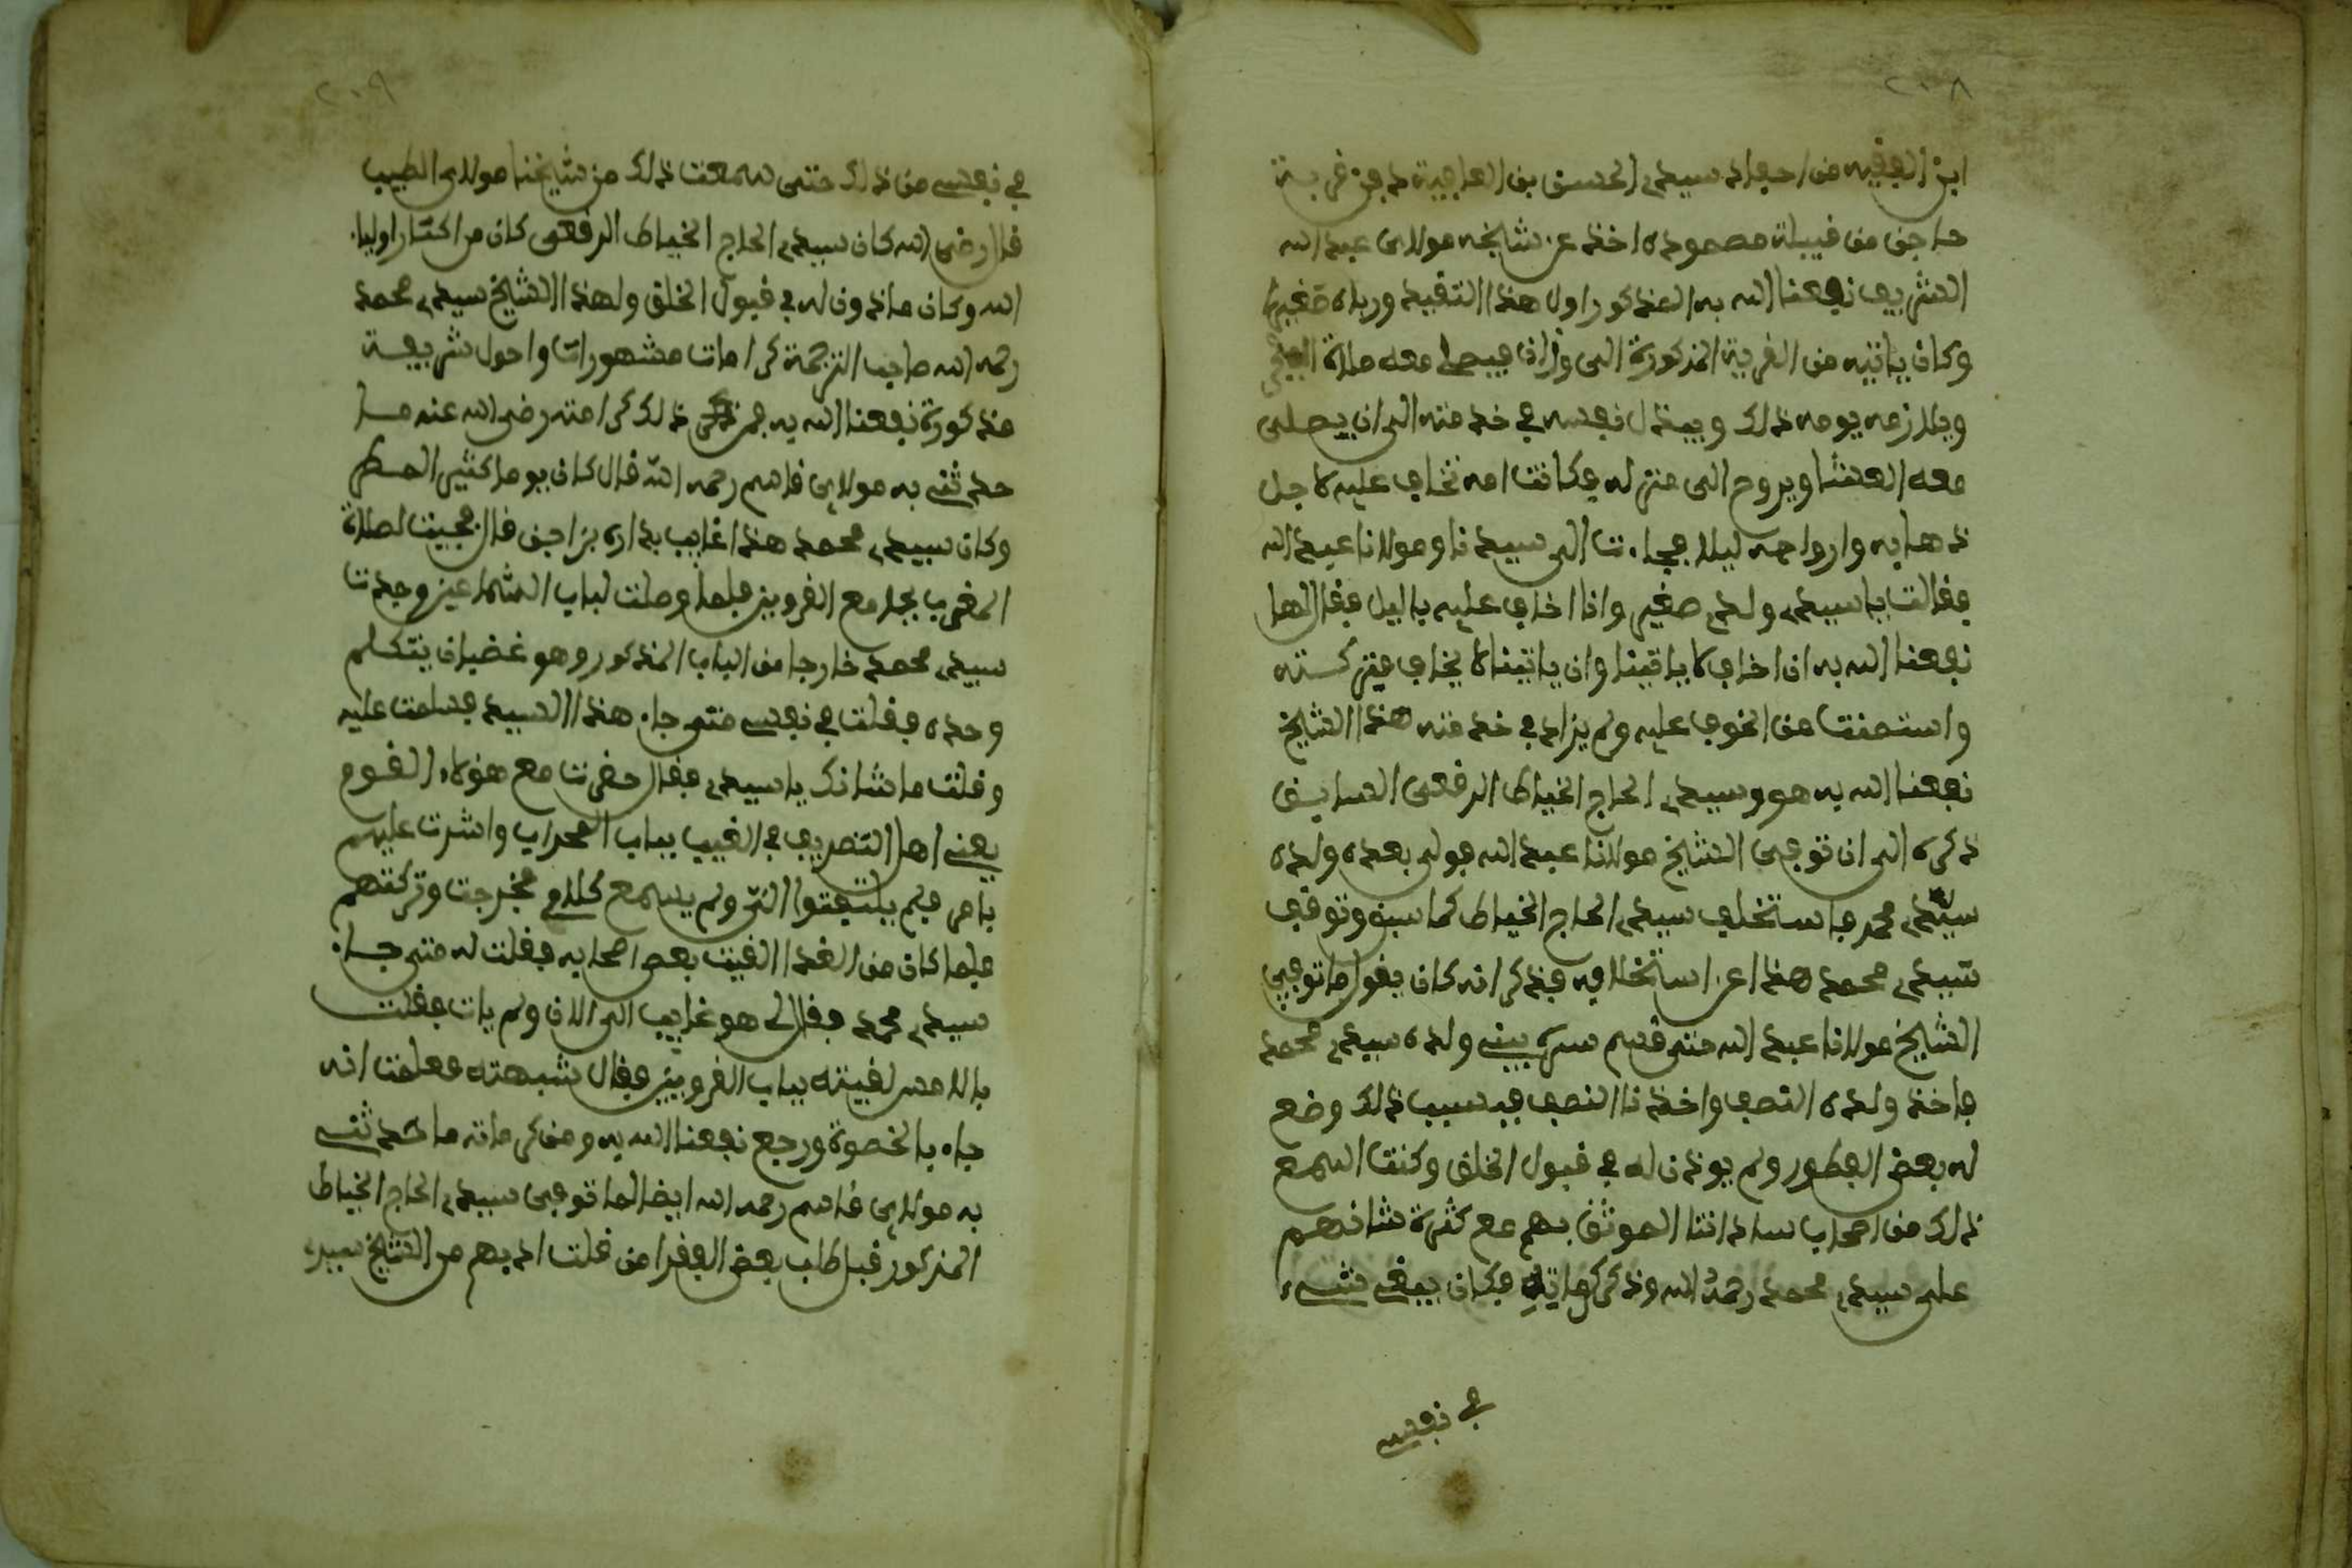 ٢٠٨
ابن الفقيه من احفاد سيدي الحسن بن
حاجن من قبيلة مصمودة اخذ عن شايخه مولاى عبد الله
الشريف نفعنا الله به المذكور اول هذا التقييد ورباه صغيرا
وكان ياتيه من القرية المذكورة الى وزان فيصلى معه صلاة
ويلازمه يومه ذلك ويبتذل نفسه في خدمته الى ان يصلى
معه العشا ويروح الى منزله فكانت امه تخاف عليه لاجل
ذهابه وارواحه ليلا فجاءت الى سيدنا ومولانا عبد الله
فقالت ياسيدي ولدي صغير وانا اخاف عليه باليل فقال لها
نفعنا الله به ان اخاف لا ياتينا وان ياتينا لا يخاف فتركته
واستمنت من الخوف عليه ولم يزاد في خدمته هذا الشايخ
نفعنا الله به هو وسيدي الحاج الخياط الرقعى السابق
ذكره الى ان توفى الشايخ مولانا عبد الله فولى بعده ولده
سيدي محمد فاستخلف سيدي الحاج الخياط كما سبق وتوقف
سيدي محمد هذا عن استخلافه فذكر انه كان يقول ما توفي
الشايخ مولانا عبد الله حتى قسم سره بيني ولده سيدي محمد
فاخذ ولده النصف واخذنا النصف فبسبب ذلك وضع
له بعض الفطور ولم يوذن له في قبول الخلق وكنت اسمع
ذلك من اصحاب ساداتنا الموثق بهم مع كثرة شانهم
على سيدي محمد رحمه الله وذكر كراماته فكان يبقى شيء
في نفسي
٢٠٩
في نفسي من ذلك حتى سمعت ذلك من شايخنا مولاى الطيب
قال رضى الله كان سيدي الحاج الخياط الرقعى كان من اكتار اولياء
الله وكان ماذون له في قبول الخلق ولهذا الشايخ سيدي محمد
رحمه الله صاحب الترجمة كرامات مشهورات واحول شريفة
مذكورة نفعنا الله به فمن ذلك كرامته رضى الله عنه ما
حدثني به مولاى قاسم رحمه الله قال كان يوما كثير المطر
وكان سيدي محمد هذا غايب بداره بزاجن قال فجيت لصلاة
المغرب بجامع القرويين فلما وصلت لباب الشماعين وجدت
سيدي محمد خارجا من الباب المذكور وهو غضبان يتكلم
وحده فقلت في نفسي متى جاء هذا السيد فسلمت عليه
وقلت ما شانك ياسيدي فقال حضرت مع هولاء القوم
يعني اهل التصريف في الغيب بباب المحراب واشرت عليهم
بامر فلم يلتفتوا الىّ ولم يسمع كلامي فخرجت وتركتهم
فلما كان من الغد القيت بعض اصحابه فقلت له متى جاء
سيدي محمد فقال لى هو غايب الى الان ولم يات فقلت
بالامس لقيته بباب القرويين فقال شبهته فعلمت انه
جاء بالخصوة ورجع نفعنا الله به ومن كرماته ما حدثني
به مولاى قاسم رحمه الله ايضا لما توفى سيدي الحاج الخياط
المذكور قبل طلب بعض الفقرا من قلت ادبهم من الشايخ سيدي